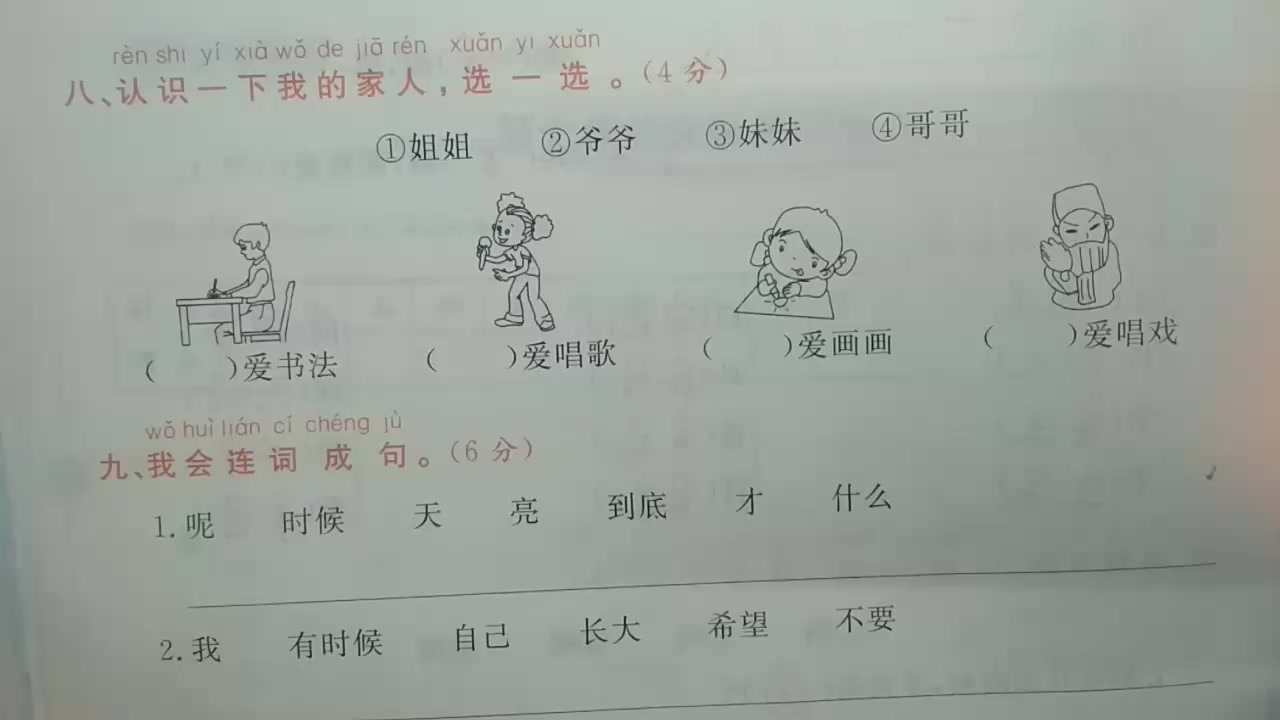 rèn shi yí xià wǒ de jiā rén xuǎn yi xuǎn
八、认识一下我的家人，选一选。（4分）
①姐姐 ②爷爷 ③妹妹 ④哥哥
（ ）爱书法 （ ）爱唱歌 （ ）爱画画 （ ）爱唱戏
wǒ huì lián cí chéng jù
九、我会连词成句。（6分）
1.呢 时候 天 亮 到底 才 什么
2.我 有时候 自己 长大 希望 不要